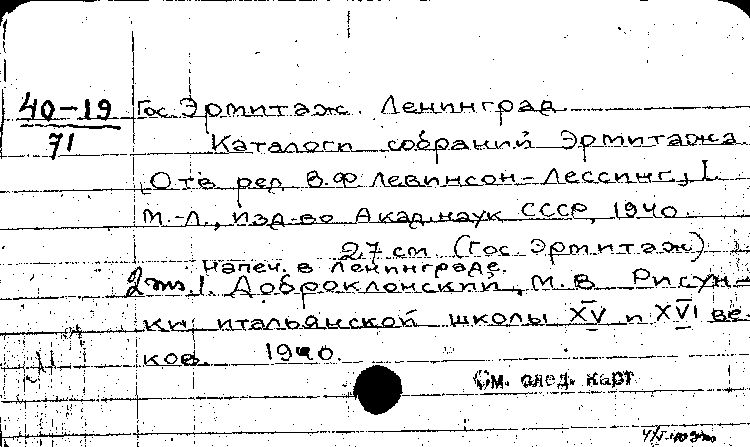 40-19
71
Гос. Эрмитаж. Ленинград.
Каталоги собраний Эрмитажа
Отв. ред. В.Ф. Левинсон-Лессинг, I.
М.-Л., Изд-во Акад. наук СССР, 1940.
27 см (Гос. Эрмитаж)
Напеч. в Ленинграде.
1. Доброклонский, М.В. Рисун-
ки итальянской школы XV и XVI ве-
ков. 1940.
См. след. карт